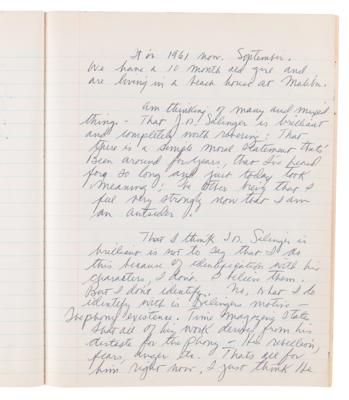 It is 1961 now. September.
We have a 10 month old girl and
are living in a beach house at Malibu.
Am thinking of many and mixed
things - That J.D. Salinger is brilliant
and completely worth revering: That
there is a simple moral statement that's
been around for years, that I've heard
for so long and just today took
meaning: The other being that I
feel very strongly now that I am
an outsider.
That I think J.D. Salinger is
brilliant is not to say that I do
this because of identification with his
characters, I don't. I believe them.
But I don't identify. No, what I do
identify with is Salingers motive -
The phony existence. Time magazine states
that all of his work derives from his
distaste for the phony - His rebellion,
fears, anger etc. Thats all for
him right now. I just think He